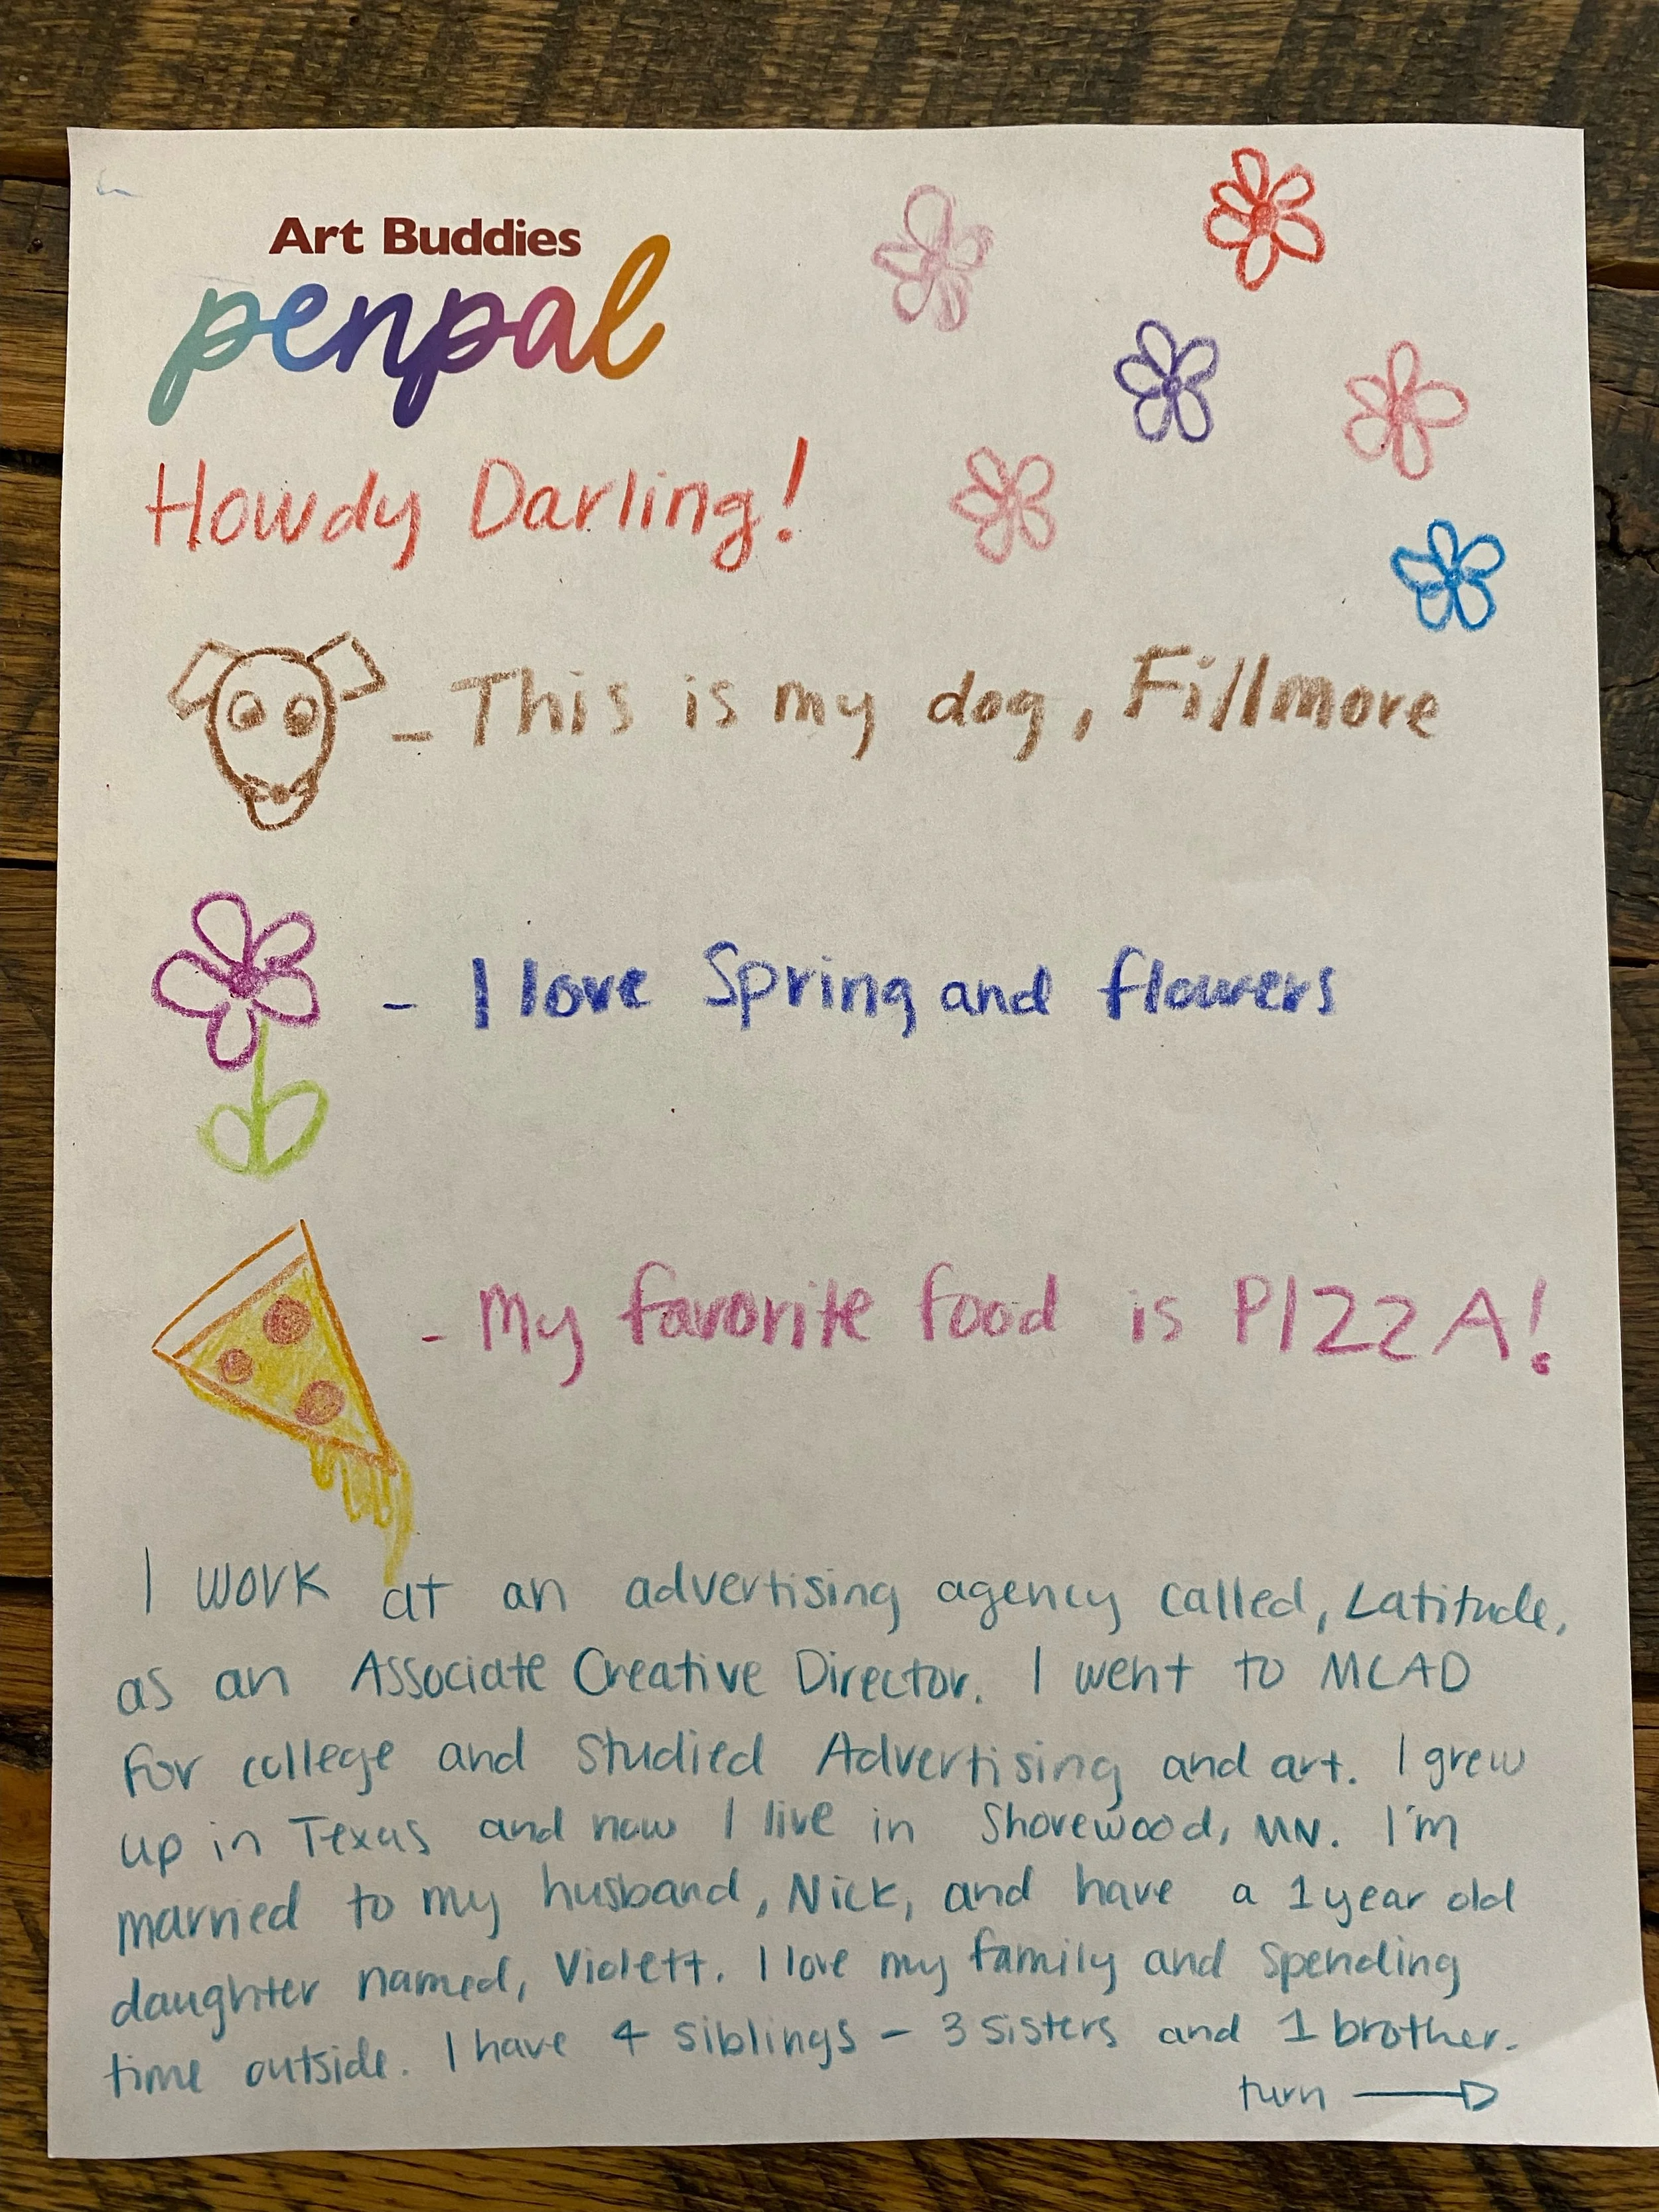 Art Buddies
penpal
Howdy Darling!
- This is my dog, Fillmore
- I love Spring and flowers
- My favorite food is PIZZA!
I work at an advertising agency called, Latitude,
as an Associate Creative Director. I went to MCAD
for college and studied Advertising and art. I grew
up in Texas and now I live in Shorewood, MN. I'm
married to my husband, Nick, and have a 1 year old
daughter named, Violett. I love my family and spending
time outside. I have 4 siblings - 3 sisters and 1 brother.
turn →